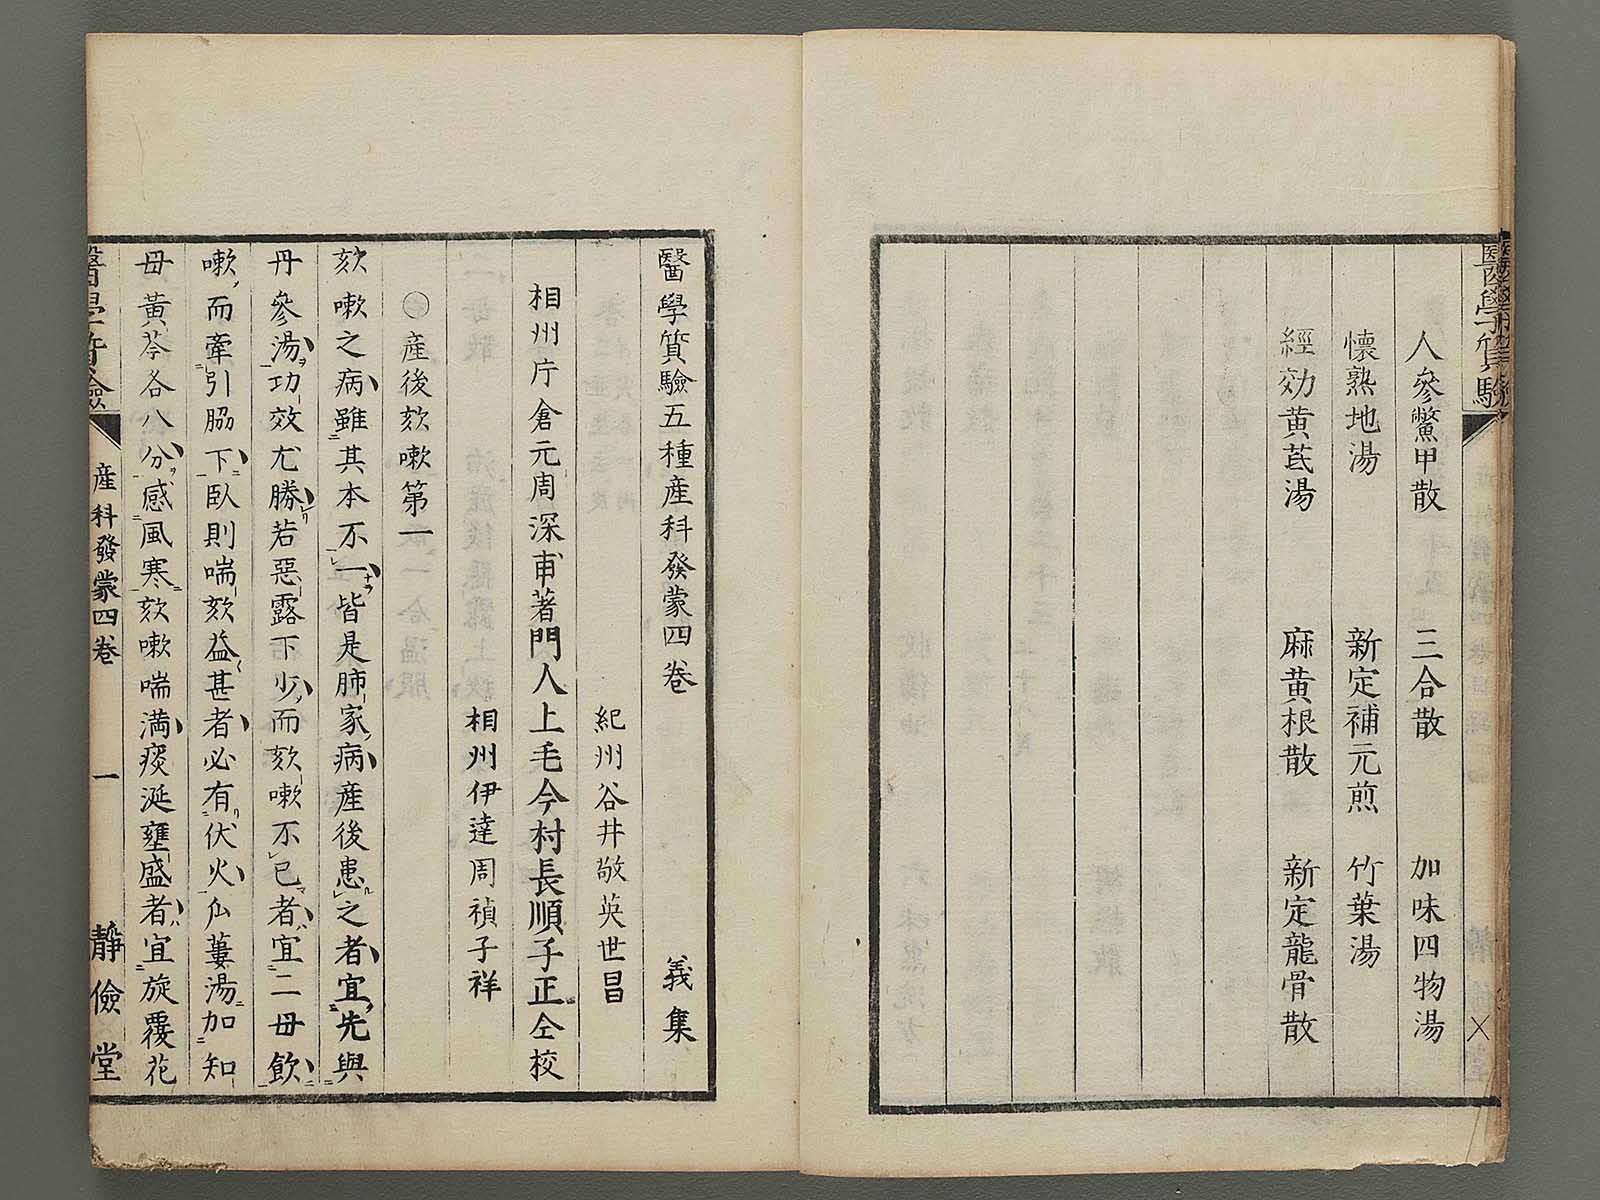 醫學質驗
人參鱉甲散　三合散　加味四物湯
懷熟地湯　新定補元煎　竹葉湯
經効黄芪湯　麻黄根散　新定龍骨散
醫學質驗五種産科發蒙四卷　義集
紀州谷井敬英世昌
相州庁倉元周深甫著門人上毛今村長順子正仝校
相州伊達周禎子祥
○産後欬嗽第一
欬嗽之病雖其本不一皆是肺家病産後患之者宜先與
丹參湯功效尤勝若惡露下少而欬嗽不已者宜二母飲
嗽而牽引脇下臥則喘欬益甚者必有伏火仙蔞湯加知
母黄芩各八分感風寒欬嗽喘満痰涎壅盛者宜旋覆花
産科發蒙四卷　一　靜儉堂